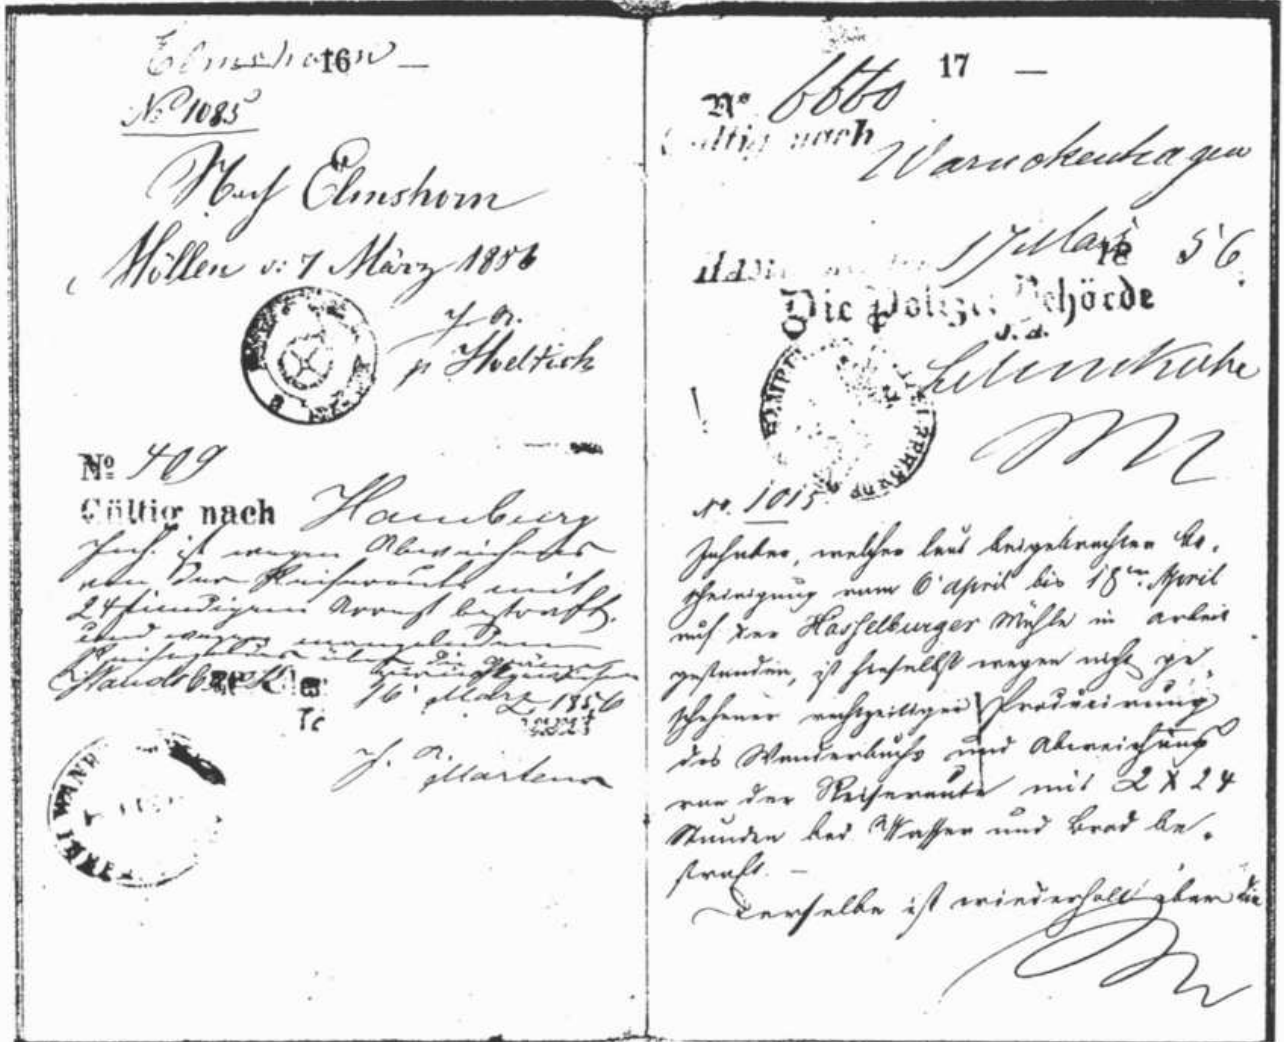 16 —
No 1085
Nach Elmshorn
Möllen d: 7 März 1856
No 409
Gültig nach Hamburg
Inh. ist wegen Abweichens
von der Reiseroute mit
24stündigem Arrest bestraft
und wegen mangelnden
Reisegeldes über die Gränze
Wandsbeck 16 März 1856
J. A.
Martens
17 —
No 6660
Gültig nach
Warnckenhagen
17 Mai 1856
Die Polizei Behörde
J. A.
No. 1015
Inhaber, welcher laut beigebrachter Be-
scheinigung vom 6 April bis 18ten April
auf der Hasselburger Mühle in Arbeit
gestanden, ist hieselbst wegen nicht ge-
schehener rechtzeitiger Producirung
des Wanderbuchs und Abweichung
von der Reiseroute mit 2 X 24
Stunden bei Wasser und Brod be-
straft. —
Derselbe ist wiederholt über die